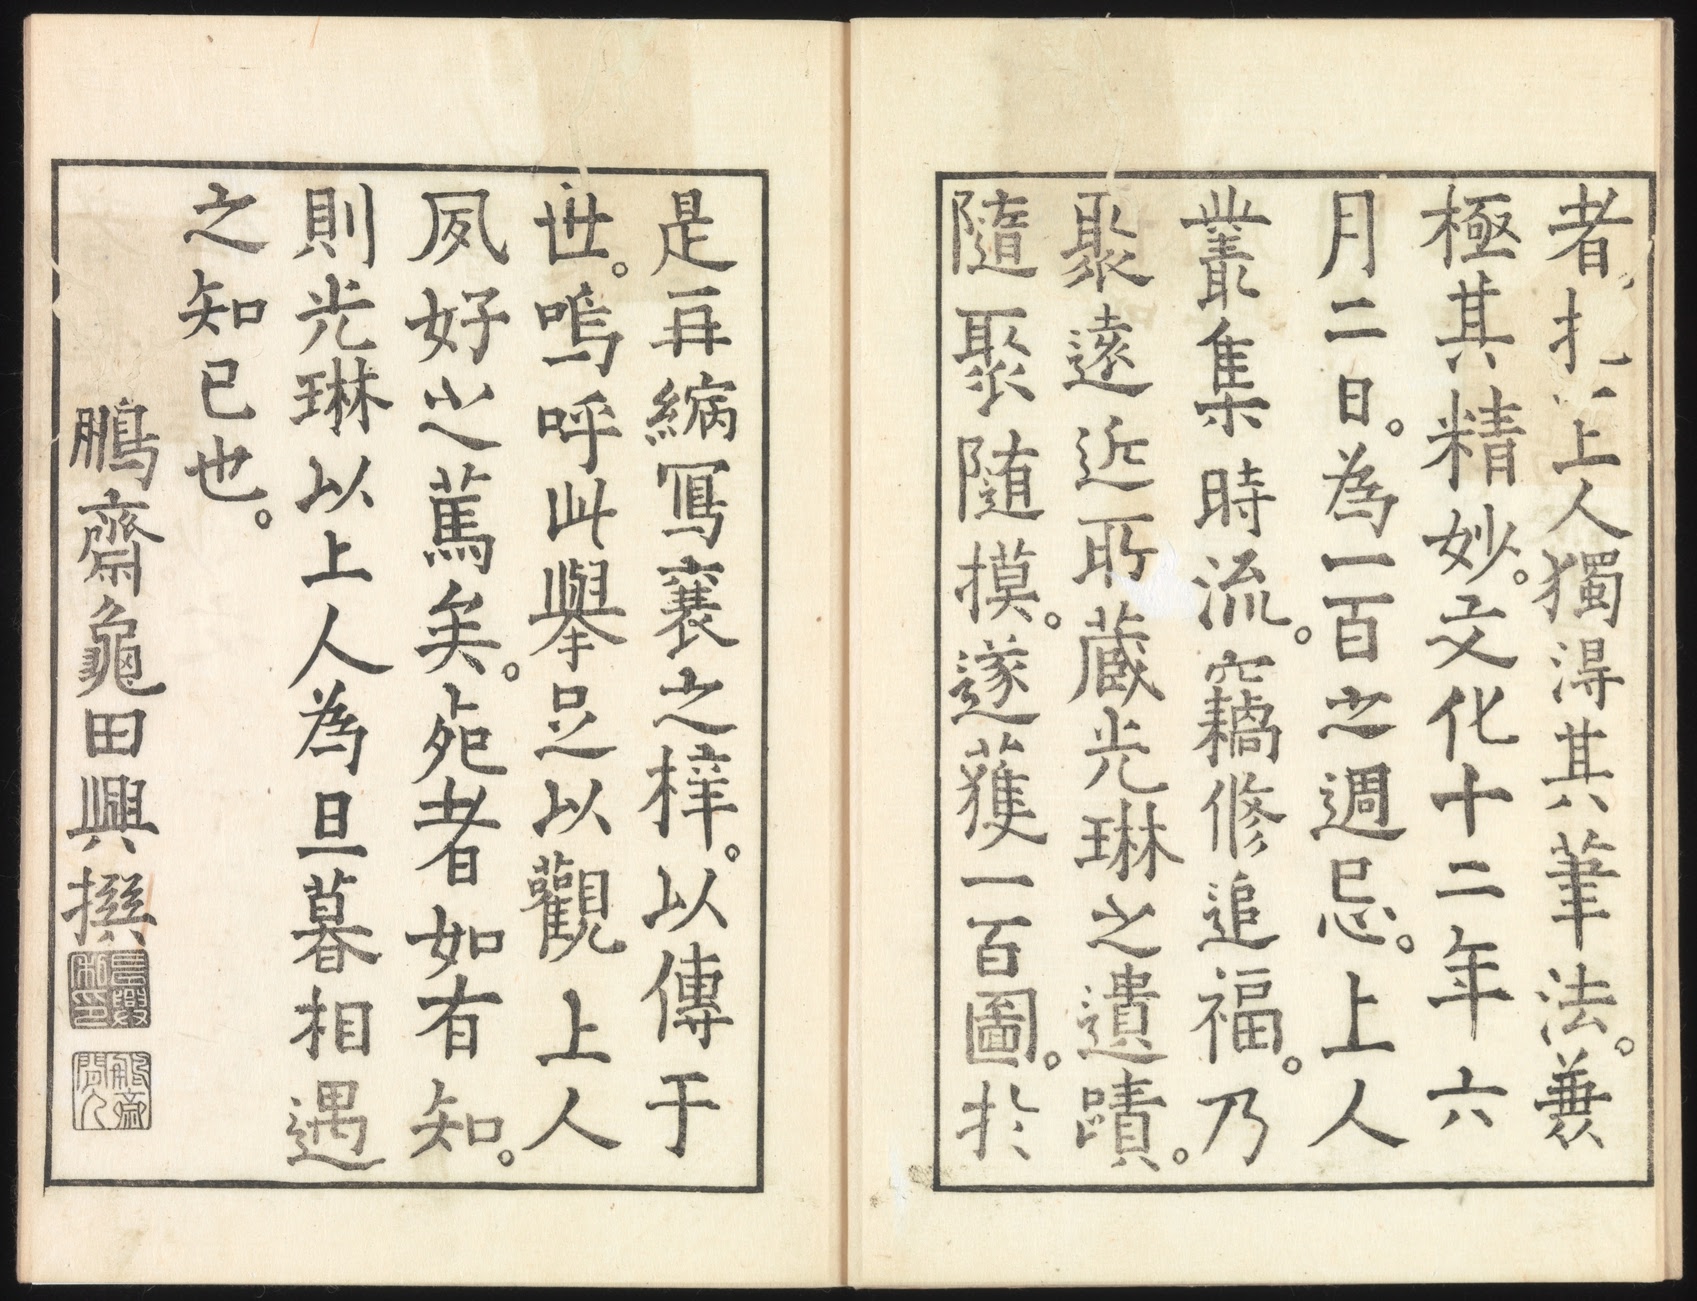 者扵上人獨淂其筆法。兼
極其精妙。文化十二年六
月二日。為一百之週忌。上人
叢集時流。竊修追福。乃
聚遠近所蔵光琳之遺蹟。
隨聚隨摸。遂獲一百圖。扵
是再縮寫襄之梓。以傳于
世。嗚呼此擧足以觀 上人
夙好之篤矣。死者如有知。
則光琳以上人為旦暮相遇
之知已也。
鵬齋龜田興撰